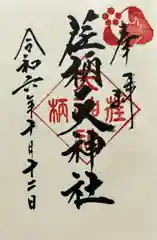 奉拝
荏柄天神社
令和六年十月十二日
荏
柄